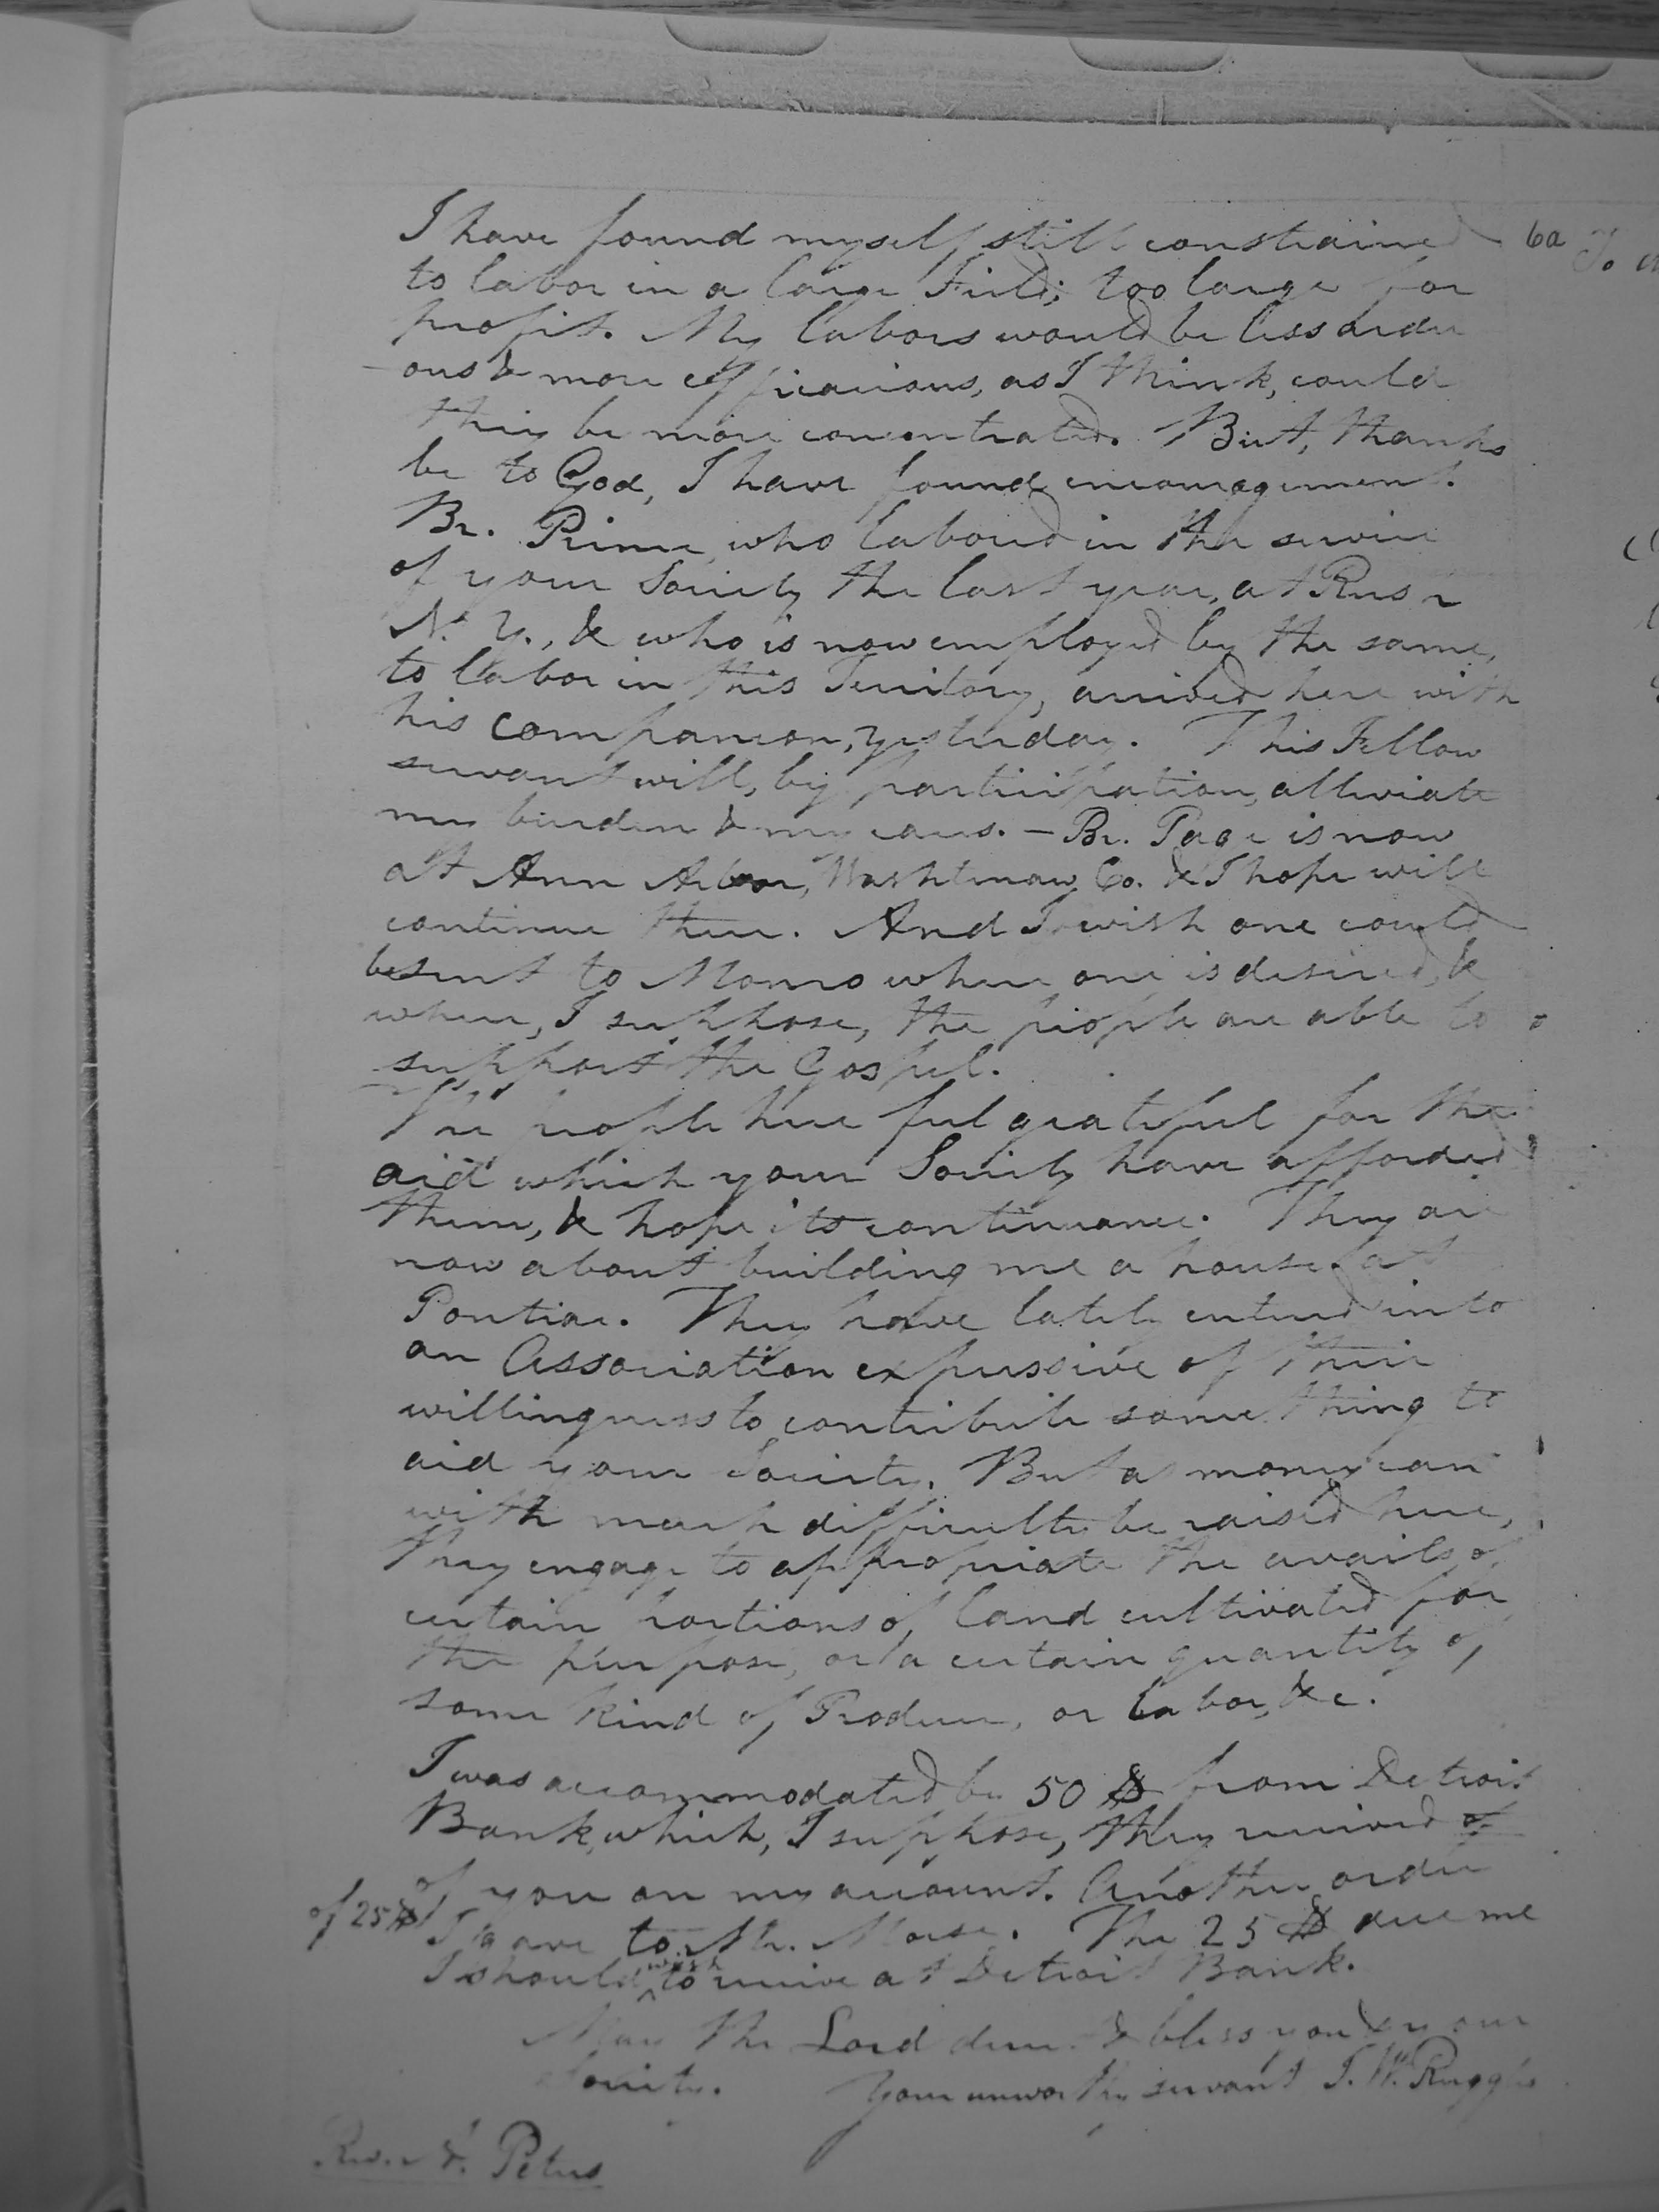 I have found myself still constrained
6a
to labor in a large Field; too large for
profit. My labors would be less ardu
-ous & more efficacious, as I think, could
they be more concentrated. But, thanks
be to God, I have found encouragement.
Br. Prime, who labored in the service
of your Society the last year, at Rush
N. Y., & who is now employed by the same,
to labor in this Territory, arrived here with
his companion, yesterday. This Fellow
servant will, by participation, alleviate
my burden & my cares. — Br. Page is now
at Ann Arbor, Washtenaw Co. & I hope will
continue there. And I wish one could
be sent to Monro where one is desired, &
where, I suppose, the people are able to
support the Gospel.
The people here feel grateful for the
aid which your Society have afforded
them, & hope its continuance. They are
now about building me a house at
Pontiac. They have lately entered into
an Association expressive of their
willingness to contribute some thing to
aid your Society. But as money can
with much difficulty be raised here,
they engage to appropriate the avails of
certain portions of land cultivated for
the purpose, or a certain quantity of
some kind of Produce, or labor, &c.
I was accommodated by 50 $ from Detroit
Bank, which, I suppose, they received of
of you on my account. Another order
of 25 $ I gave to Mr. Morse. The 25 $ due me
I should wish to receive at Detroit Bank.
May the Lord direct & bless you & your
Society. Your unworthy servant I. W. Ruggles
Rev. A. Peters